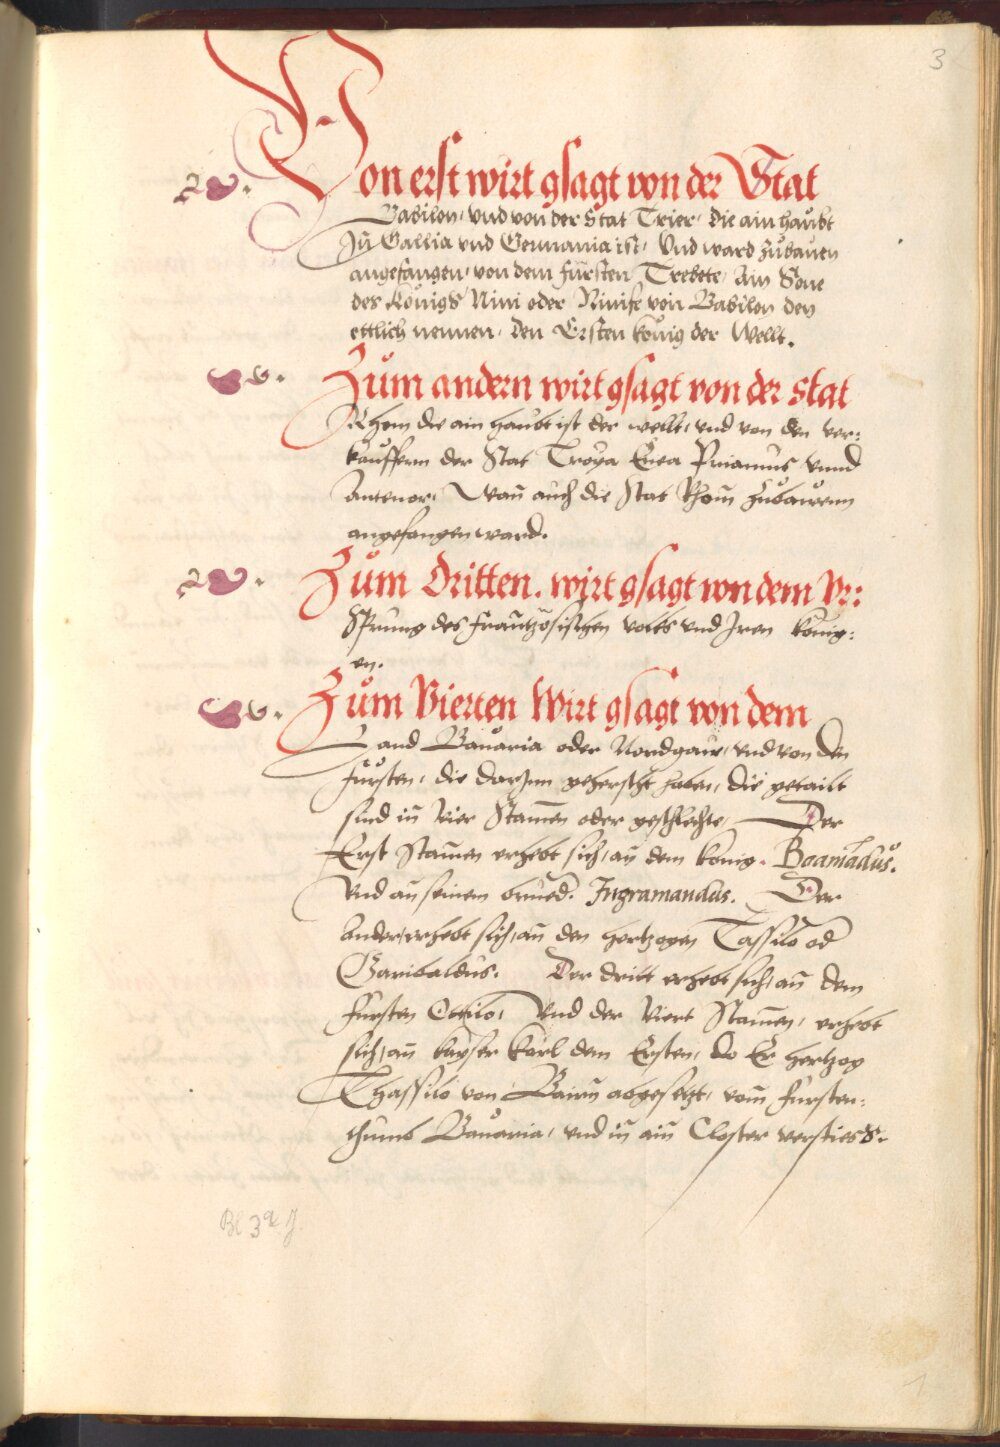 3
Von erst wirt gsagt von der Stat
Babilon, vnd von der Stat Trier, die ain haubt
Jn̄ Gallia vnd Germania ist, Vnd ward zůbauen
angefangen, von dem fürsten Trebete, Ain Sone
des Königs Nini oder Ninife von Babilon den
ettlich nennen, den Ersten könig der Wellt.
Zům andern wirt gsagt von der Stat
Rhom die ain haubt ist der wellt, vnd von den ver:
kauffern der Stat Troÿa Enea Priamus vnnd
Antenor, Wan̄ auch die Stat Rhom̄ zůbawenn
angefangen ward.
Zům Dritten. wirt gsagt von dem Vr:
Sprung des frantzösischen volcks vnd Jren könig:
en.
Zům Vierten Wirt gsagt von dem
Land Bauaria oder Nordgaw, vnd von den
fürsten, die darJnn geherscht haben, die getailt
sind in̄ Vier Stam̄en oder geschlechte, Der
Erst Stam̄en erhebt sich, an̄ dem könig. Boamūdus.
Vnd an̄ seinem brued. Ingramandus. Der
Ander, erhebt sich, an̄ den hertzogen Tassilo od
Garibaldus. Der dritt erhebt sich, an̄ dem
Fürsten Ottilo, Vnd der Viert Stam̄en, erhebt
sich, an̄ kayser Karl dem Ersten, do Er hertzog
Thassilo von Bairn̄ abgesetzt, vom̄ fürsten:
thumb Bauaria, vnd in̄ ain̄ Closter versties.
Bl 3
1